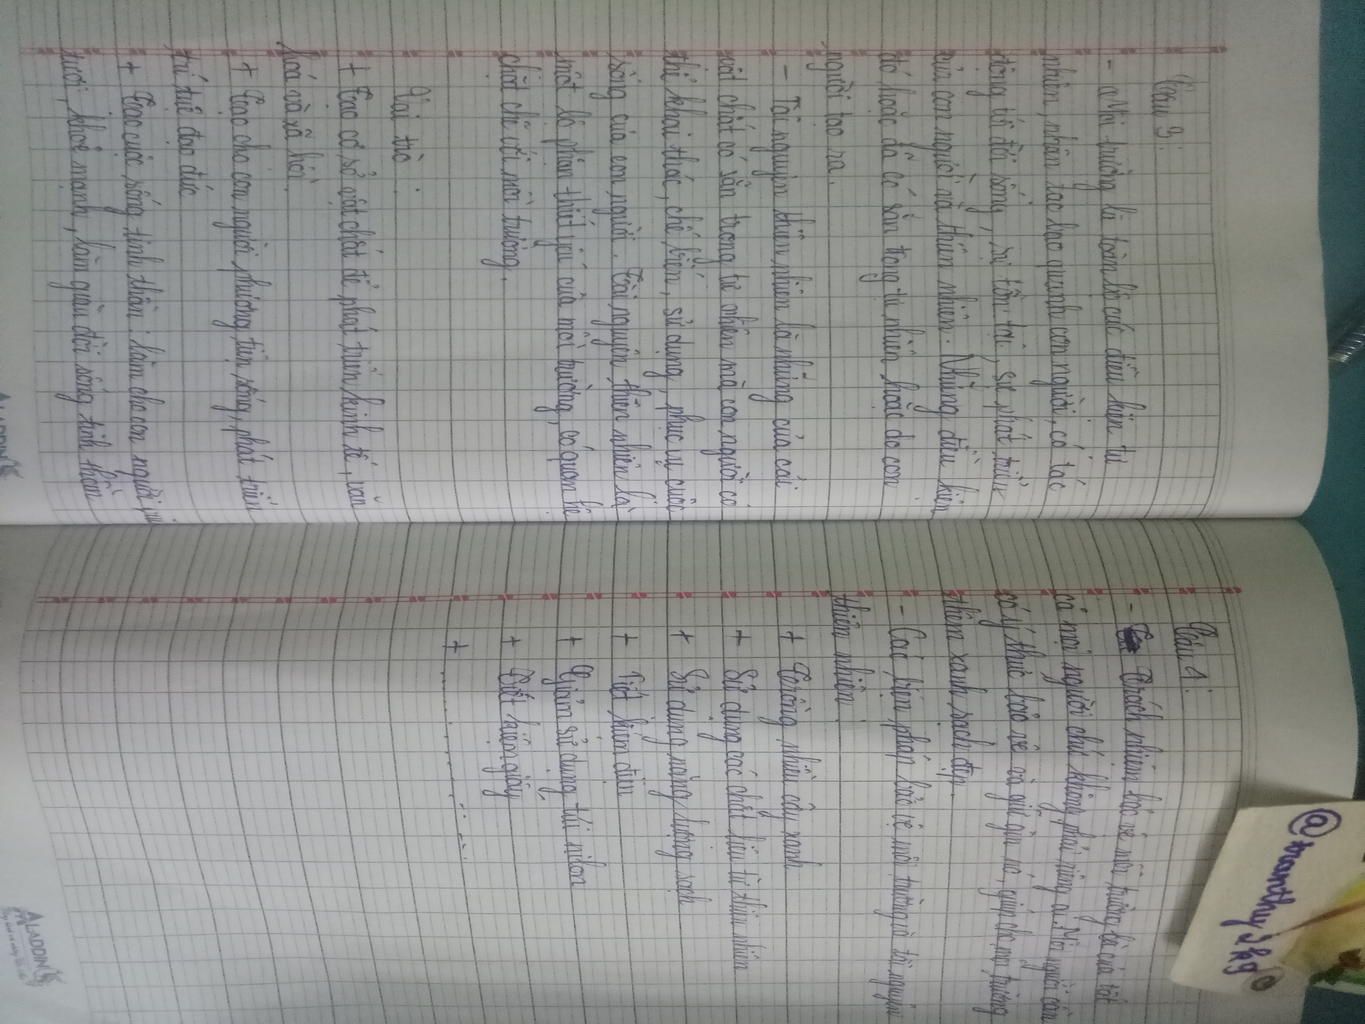 Câu 3:
- Môi trường là toàn bộ các điều kiện tự
nhiên, nhân tạo bao quanh con người, có tác
động tới đời sống, sự tồn tại, sự phát triển
của con người và thiên nhiên. Những điều kiện
đó hoặc đã có sẵn trong tự nhiên hoặc do con
người tạo ra.
- Tài nguyên thiên nhiên là những của cải
vật chất có sẵn trong tự nhiên mà con người có
thể khai thác, chế biến, sử dụng, phục vụ cuộc
sống của con người. Tài nguyên thiên nhiên là
một bộ phận thiết yếu của môi trường, có quan hệ
chặt chẽ với môi trường.
Vai trò:
+ Tạo cơ sở vật chất để phát triển kinh tế, văn
hoá và xã hội.
+ Tạo cho con người phương tiện sống, phát triển
trí tuệ đạo đức
+ Tạo cuộc sống tinh thần: làm cho con người
tươi, khoẻ mạnh, làm giàu đời sống tinh thần
ALADDIN
Câu 4:
- Trách nhiệm bảo vệ môi trường là của tất
cả mọi người chứ không phải riêng ai. Mỗi người cần
có ý thức bảo vệ và giữ gìn nó, giúp cho môi trường
thêm xanh sạch đẹp.
- Các biện pháp bảo vệ môi trường và tài nguyên
thiên nhiên:
+ Trồng nhiều cây xanh
+ Sử dụng các chất liệu từ thiên nhiên
+ Sử dụng năng lượng sạch
+ Tiết kiệm điện
+ Giảm sử dụng túi nilon
+ Tiết kiệm giấy
+ ..........
ALADDIN
@tranthuy2kg